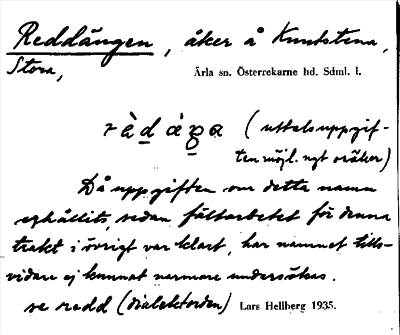 Reddängen, åker å Knutstena,
Stora,
Ärla sn. Österrekarne hd. Sdml. l.
(uttalsuppgif-
ten möjl. ngt osäker)
Då uppgiften om detta namn
erhållits, sedan fältarbetet för denna
trakt i övrigt var klart, har namnet tills-
vidare ej kunnat närmare undersökas.
se redd (dialektorden) Lars Hellberg 1935.